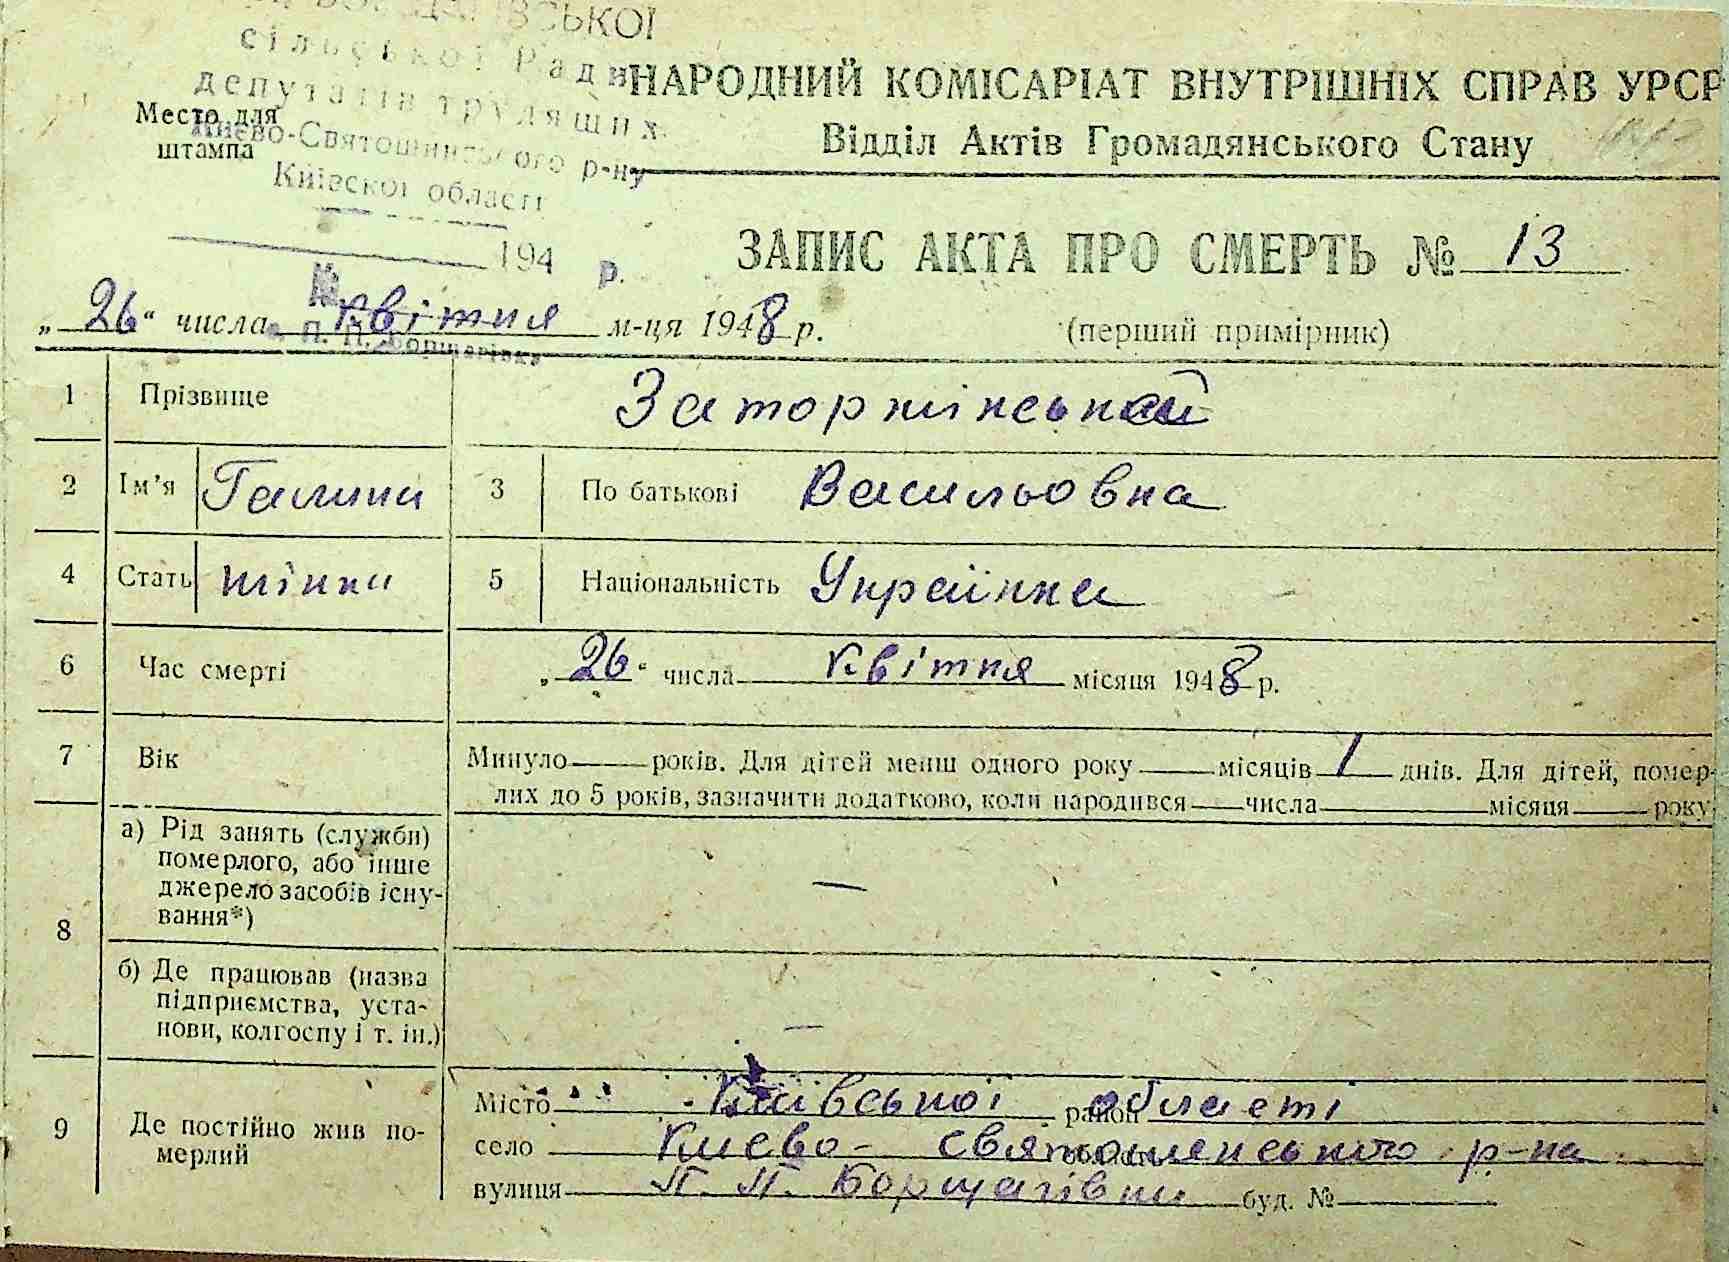 СЬКОЇ
сільської Ради
депутатів трудящих
Києво-Святошинського р-ну
Київскої області
Место для
штампа
194 р.
НАРОДНИЙ КОМІСАРІАТ ВНУТРІШНІХ СПРАВ УРСР
Відділ Актів Громадянського Стану
ЗАПИС АКТА ПРО СМЕРТЬ № 13
„26“ числа квітня м-ця 1948 р.
(перший примірник)
с. П. П. Борщагівка
1 Прізвище
2 Ім’я Галина 3 По батькові Васильовна
4 Стать жінка 5 Національність Українка
6 Час смерті „26“ числа квітня місяця 1948 р.
7 Вік Минуло — років. Для дітей менш одного року — місяців 1 днів. Для дітей, помер-
лих до 5 років, зазначити додатково, коли народився — числа — місяця — року
8 а) Рід занять (служби)
померлого, або інше
джерело засобів існу-
вання*)
—
б) Де працював (назва
підприємства, уста-
нови, колгоспу і т. ін.)
—
9 Де постійно жив по-
мерлий
Місто Київської район області
село Києво-Святошинського р-на
вулиця П. П. Борщагівки буд. №